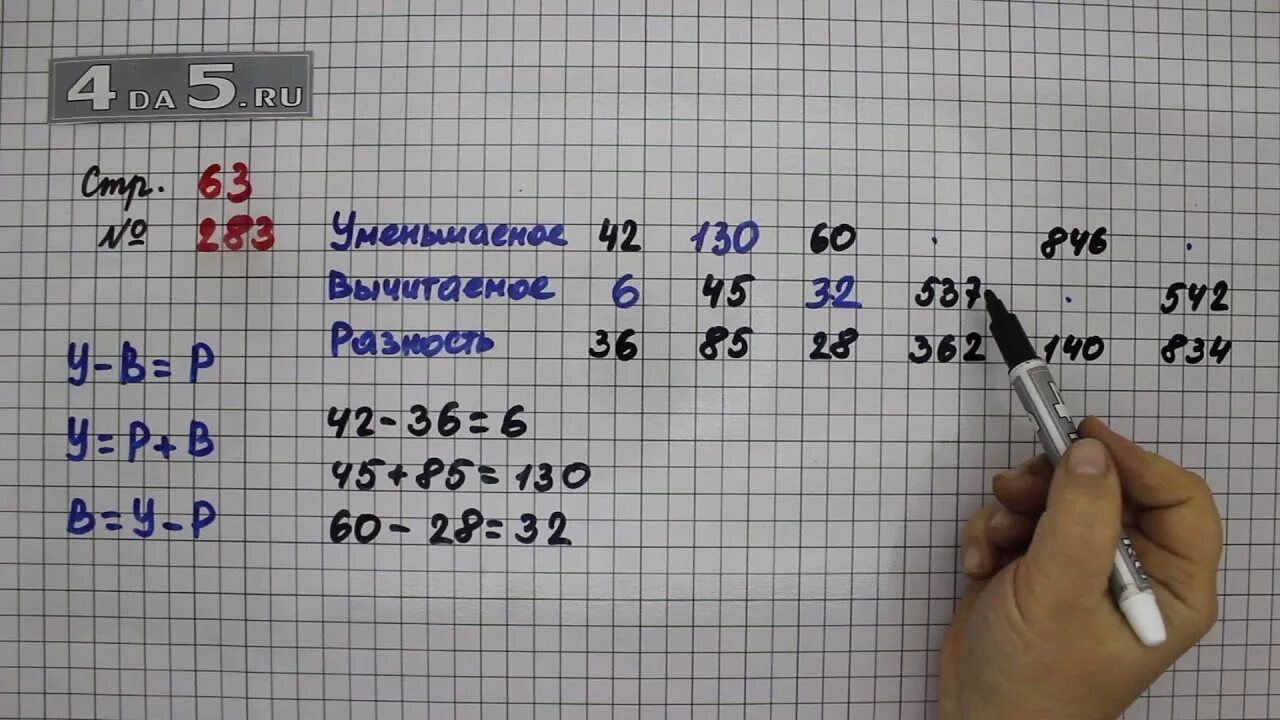 4DA5.RU
Стр. 63
№ 283
Уменьшаемое 42 130 60 . 846 .
Вычитаемое 6 45 32 537 . 542
Разность 36 85 28 362 140 834
У-В=Р
У=Р+В
В=У-Р
42-36=6
45+85=130
60-28=32